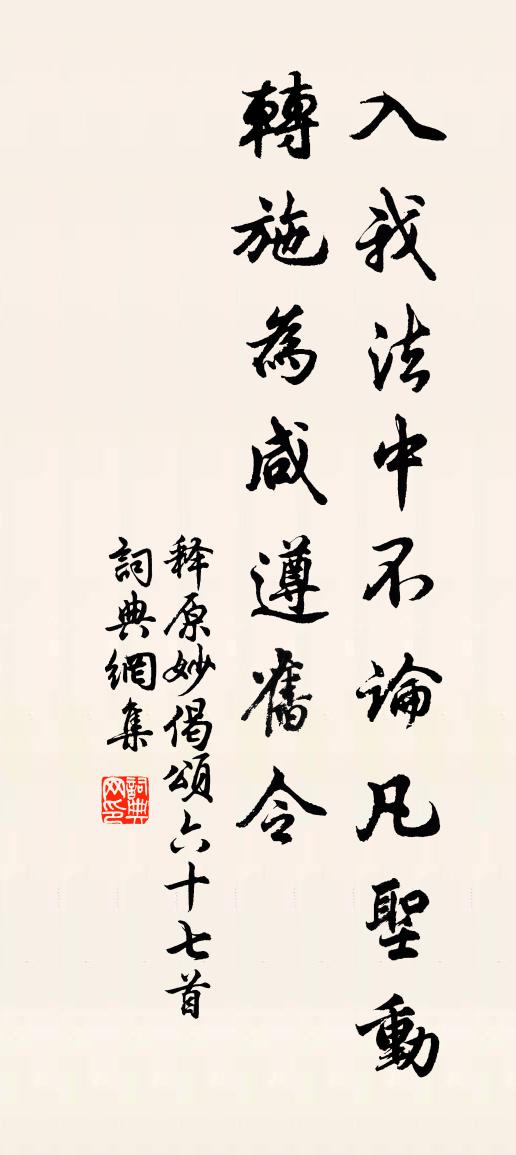 入我法中不論凡聖動
轉施為咸遵舊令
释原妙偈頌六十七首
詞典網集
詞典网印